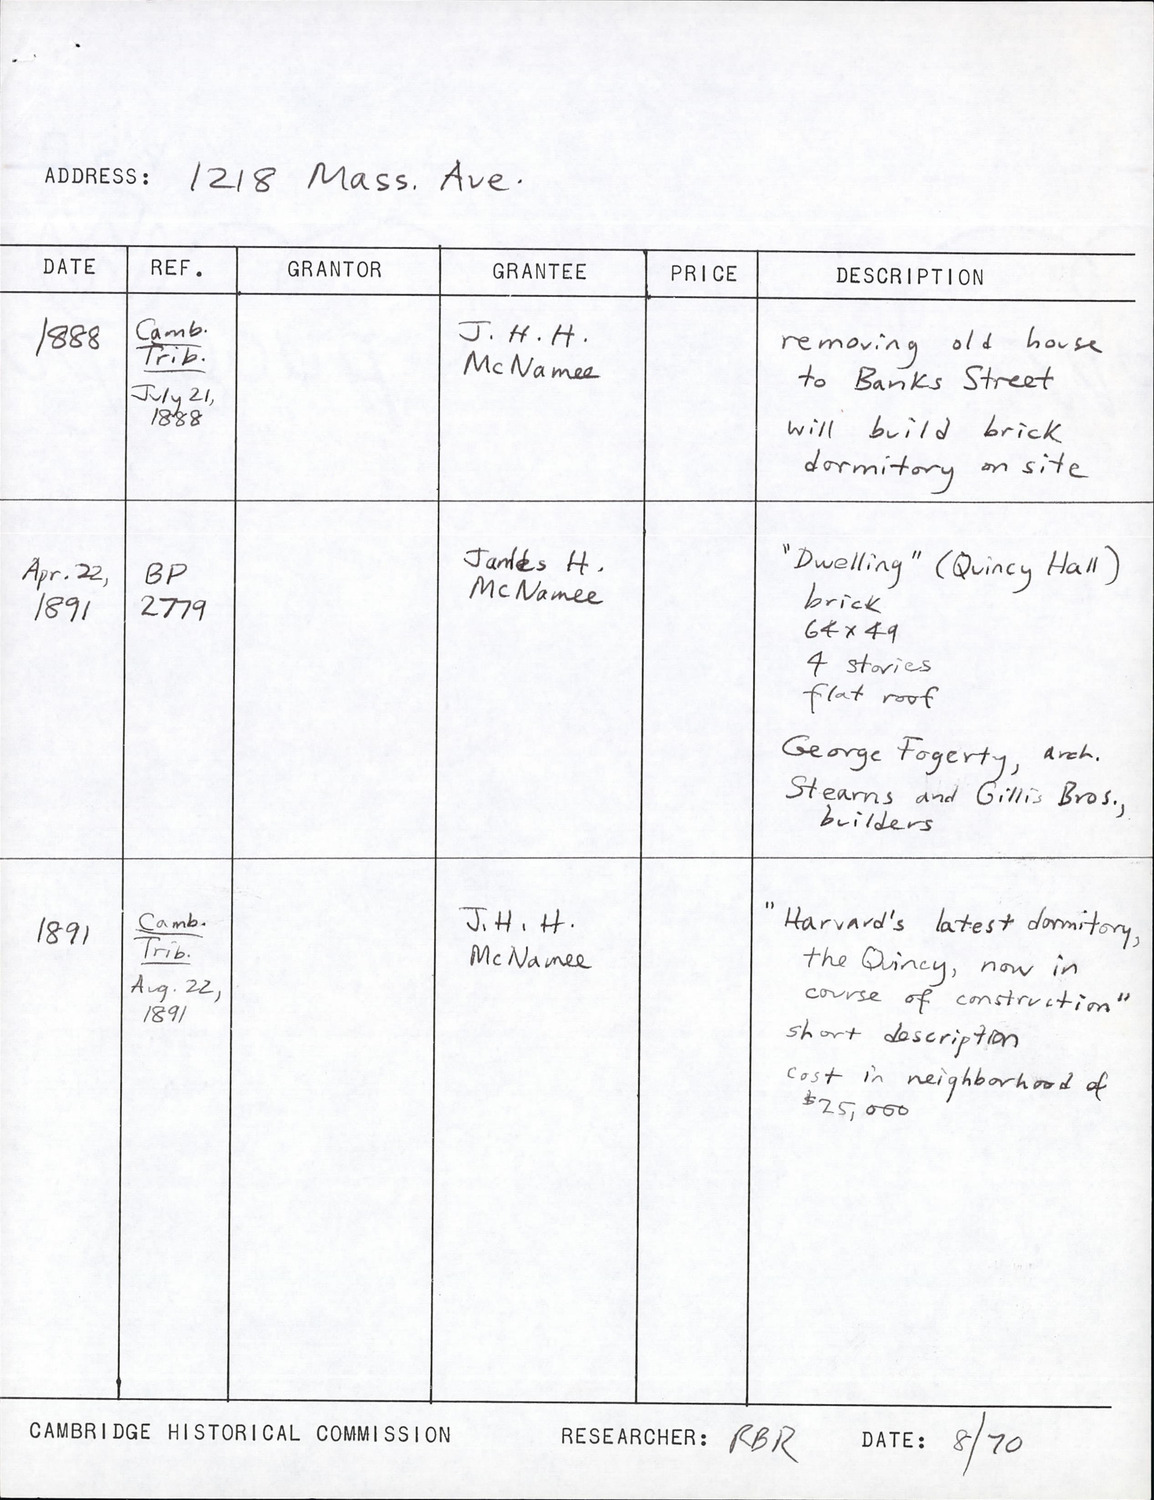 ADDRESS: 1218 Mass. Ave.
DATE REF. GRANTOR GRANTEE PRICE DESCRIPTION
1888
Camb.
Trib.
July 21,
1888
J. H. H.
McNamee
removing old house
to Banks Street
will build brick
dormitory on site
Apr. 22,
1891
BP
2779
James H.
McNamee
"Dwelling" (Quincy Hall)
brick
64 x 49
4 stories
flat roof
George Fogerty, arch.
Stearns and Gillis Bros.,
builders
1891
Camb.
Trib.
Aug. 22,
1891
J. H. H.
McNamee
"Harvard's latest dormitory,
the Quincy, now in
course of construction"
short description
cost in neighborhood of
$25,000
CAMBRIDGE HISTORICAL COMMISSION RESEARCHER: RBR DATE: 8/70